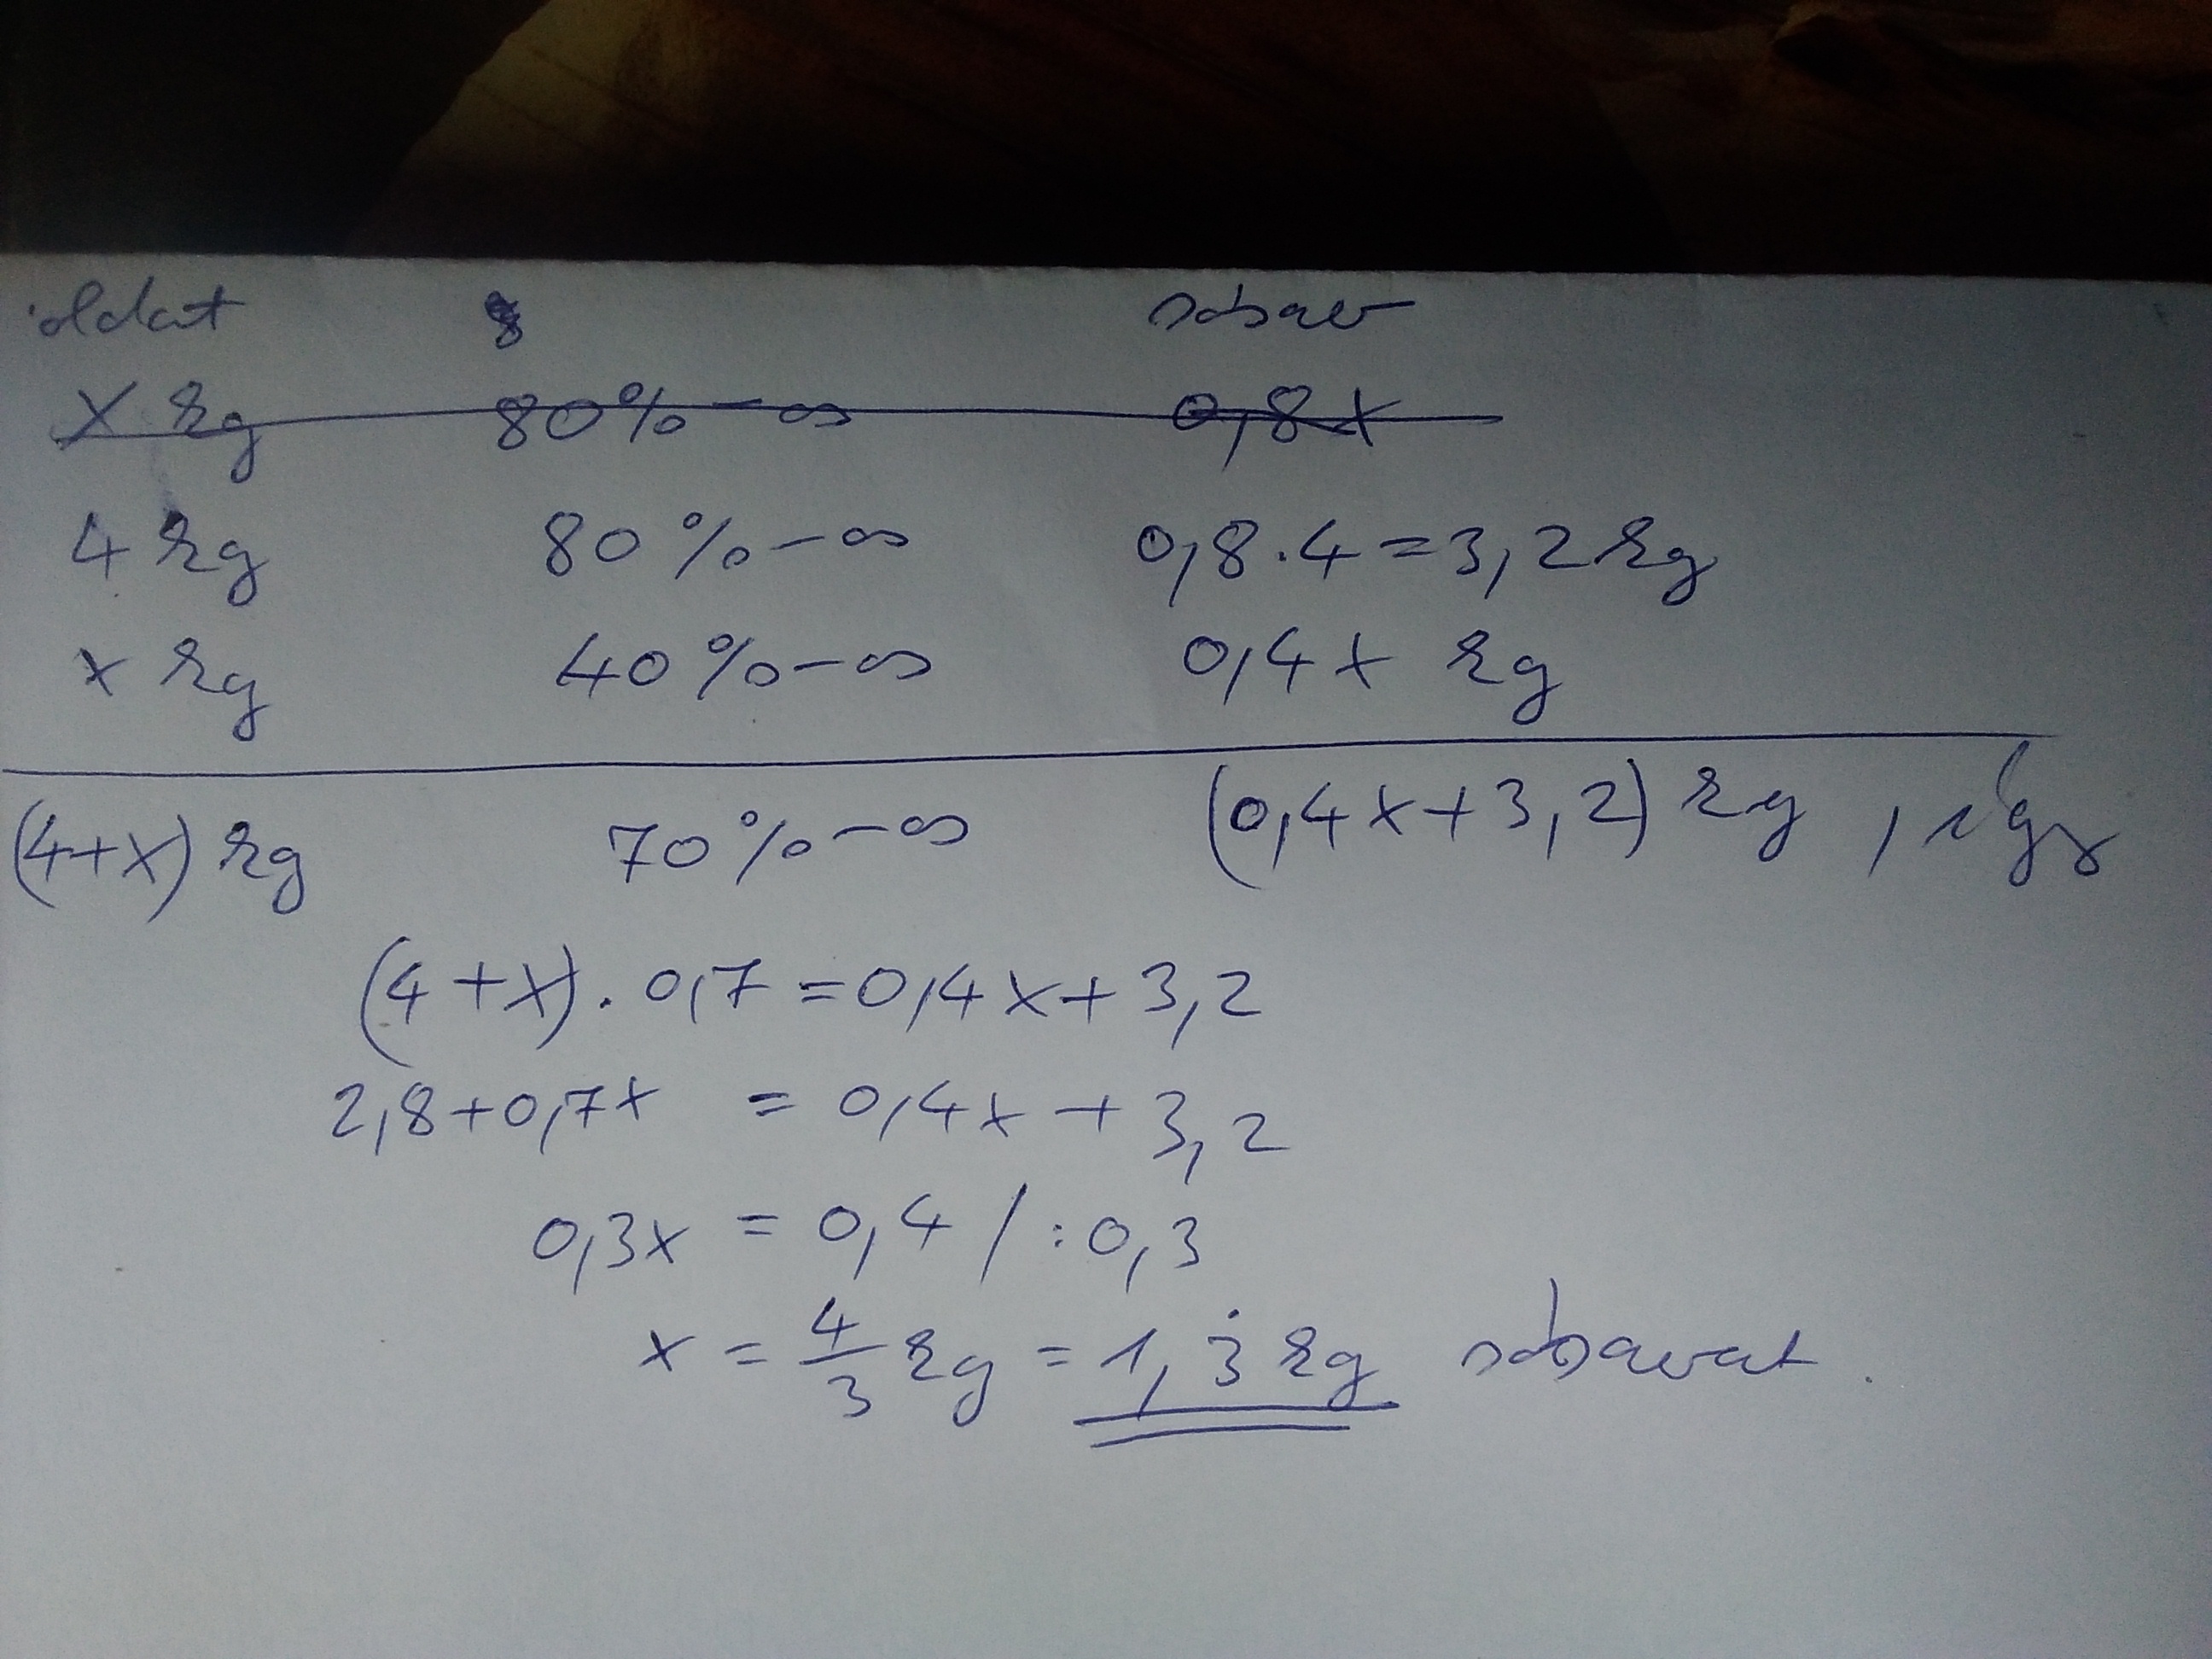 oldat sósav
x kg 80%-os 0,8x
4 kg 80%-os 0,8·4=3,2 kg
x kg 40%-os 0,4x kg
(4+x) kg 70%-os (0,4x+3,2) kg, így
(4+x)·0,7=0,4x+3,2
2,8+0,7x = 0,4x+3,2
0,3x = 0,4 /:0,3
x = 4/3 kg = 1,3̇ kg sósavat.